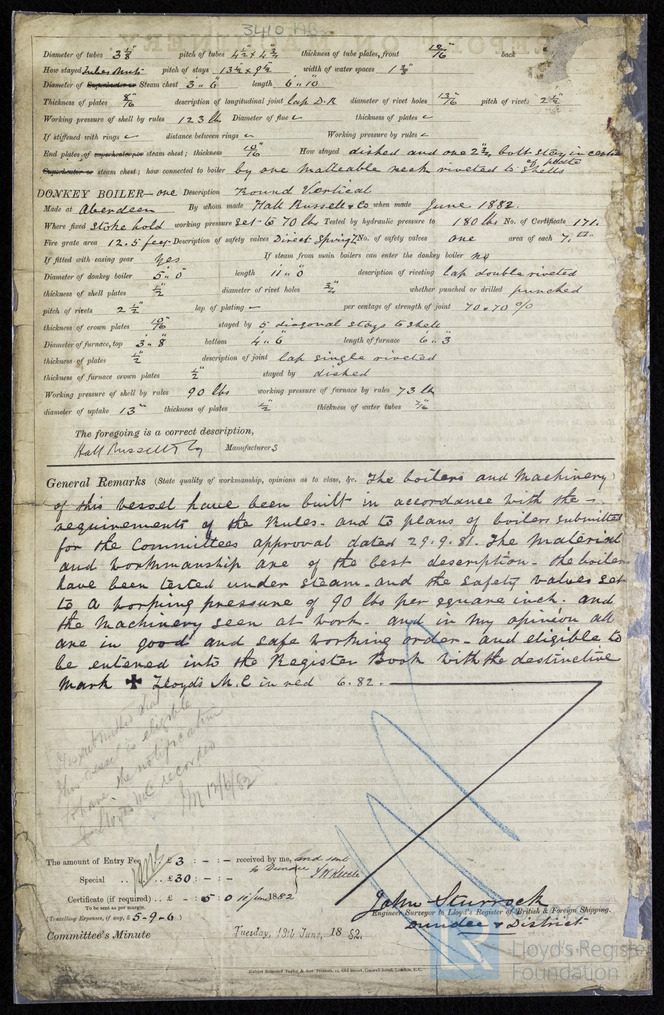 3410 Hbn
Diameter of tubes 3 1/8" pitch of tubes 4 1/2" x 4 3/4" thickness of tube plates, front 12/16" back
How stayed tubes & nuts pitch of stays 13 1/4" x 9 1/2" width of water spaces 1 3/8"
Diameter of Superheater or Steam chest 3' 6" length 6' 10"
Thickness of plates 8/16" description of longitudinal joint lap D.R diameter of rivet holes 13/16" pitch of rivets 2 1/2"
Working pressure of shell by rules 123 lb Diameter of flue thickness of plates
If stiffened with rings distance between rings Working pressure by rules
End plates of superheater or steam chest; thickness 10/16" How stayed dished and one 2 3/4" bolt stay in centre of plate
Superheater or steam chest; how connected to boiler by one malleable neck riveted to shells
DONKEY BOILER— one Description Round Vertical
Made at Aberdeen By whom made Hall Russell & Co when made June 1882.
Where fixed Stoke hold working pressure set to 70 lbs Tested by hydraulic pressure to 180 lbs No. of Certificate 171.
Fire grate area 12.5 feet Description of safety valves Direct Spring No. of safety valves one area of each 7.
If fitted with easing gear yes If steam from main boilers can enter the donkey boiler no
Diameter of donkey boiler 5' 0" length 11' 0" description of riveting lap double riveted
thickness of shell plates 1/2" diameter of rivet holes 3/4" whether punched or drilled punched
pitch of rivets 2 1/2" lap of plating per centage of strength of joint 70 x 70 %
thickness of crown plates 10/16" stayed by 5 diagonal stays to shell
Diameter of furnace, top 3' 8" bottom 4' 6" length of furnace 6' 3"
thickness of plates 1/2" description of joint lap single riveted
thickness of furnace crown plates 1/2" stayed by dished
Working pressure of shell by rules 90 lbs working pressure of furnace by rules 73 lb
diameter of uptake 13" thickness of plates 1/2" thickness of water tubes 7/16"
The foregoing is a correct description,
Hall Russell & Co Manufacturers
General Remarks (State quality of workmanship, opinions as to class, &c. The boilers and Machinery
of this vessel have been built in accordance with the
requirements of the Rules. and to plans of boilers submitted
for the Committees approval dated 29.9.81. The Material
and workmanship are of the best description. the boilers
have been tested under steam. and the safety valves set
to a working pressure of 90 lbs per square inch. and
the Machinery seen at work. and in my opinion all
are in good and safe working order. and eligible to
be entered into the Register Book with the distinctive
Mark ✠ Lloyd's M.C in red 6.82.
It is submitted that
this vessel is eligible
to have the notification
✠ Lloyds MC recorded
12/6/82
The amount of Entry Fee £3 : - : - received by me, and sent
to Dundee
Special £30 : - : -
Certificate (if required) £ - 5 0 10 June 1882
To be sent as per margin.
(Travelling Expenses, if any, £ 5-9-6)
John Sturrock
Engineer Surveyor to Lloyd's Register of British & Foreign Shipping.
Dundee & District
Committee's Minute Tuesday, 13th June, 18 82.
Lloyd's Register
Foundation